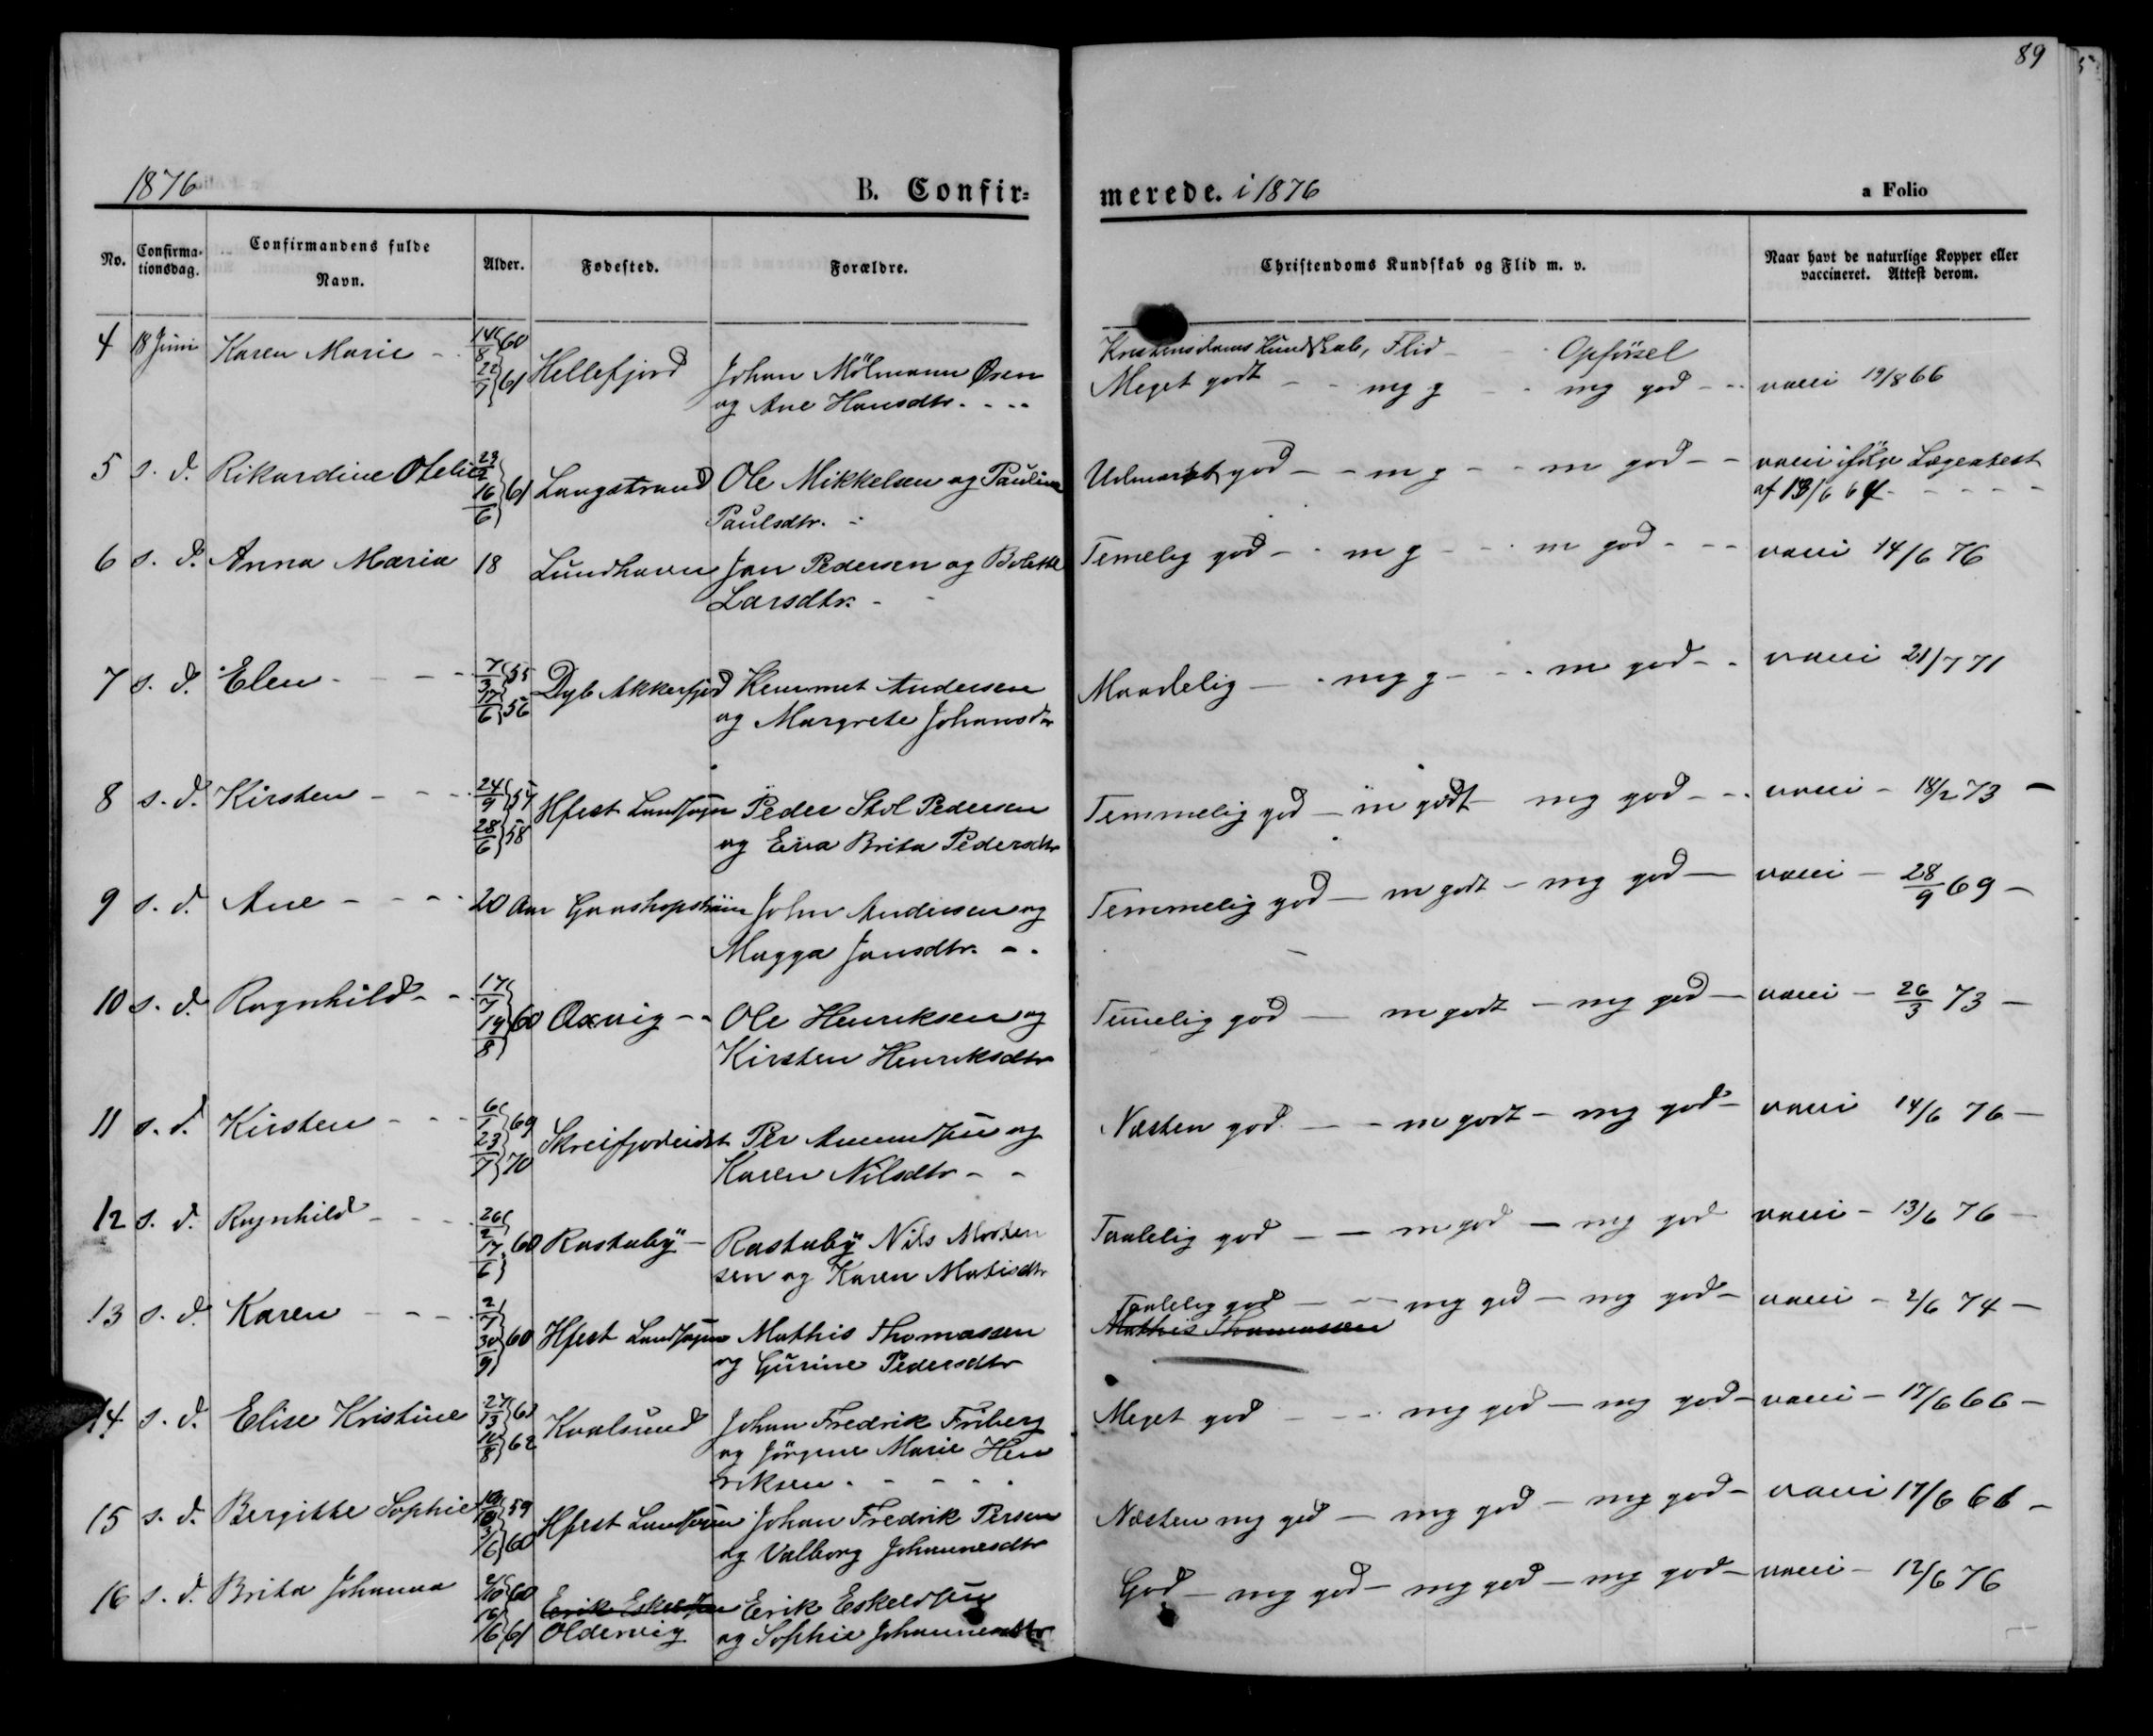 89
1876
B. Confir=
merede. i 1876
a Folio
No.
Confirma-
tionsdag.
Confirmandens fulde
Navn.
Alder.
Fødested.
Forældre.
Christendoms Kundskab og Flid m. v.
Naar havt de naturlige Kopper eller
vaccineret. Attest derom.
Kristensdoms Kundskab, Flid - - Opförsel
4 18 Juni Karen Marie - 14/8 60 22/7 61 Hellefjord Johan Mölmann Øien Meget godt - - mg g - - mg god - - vacci 19/8 66
og Ane Hansdtr. - - -
5 s. d. Rikardine Otelie 16/6 61 Langstrand Ole Mikkelsen og Pauline Udmærket god - - m g - - m god - - vacci ifölge Lægeatest
Paulsdtr. - af 13/6 64 - - - -
6 s. d. Anna Maria 18 Lundhavn Jan Pedersen og Bolette Temelig god - - m g - - m god - - - vacci 14/6 76
Larsdtr. - -
7 s. d. Elen - - - - 7/3 55 17/6 56 Dyb Akkerfjord Hemmet Andersen Maadelig - - mg g - - - m god - - vacci 21/7 71
og Margrete Johansdtr
8 s. d. Kirsten - - - 24/9 57 28/6 58 Hfest Landsogn Peder Skol Pedersen Temmelig god - m godt - mg god - - vacci - 18/2 73 -
og Eva Brita Pedersdtr
9 s. d. Ane - - - - 20 Aar Gaashopstrøm John Andersen og Temmelig god - m godt - mg god - vacci - 28/9 69 -
Magga Jansdtr. - -
10 s. d. Ragnhild - - 17/7 19/8 60 Oxvig - - Ole Henriksen og Temelig god - m godt - mg god - vacci - 26/3 73 -
Kirsten Henriksdtr
11 s. d. Kirsten - - - 6/1 69 23/7 70 Skreifjordeidet Per Amundsen og Næsten god - - m godt - mg god - vacci 14/6 76 -
Karen Nilsdtr - -
12 s. d. Ragnhild - - - 26/2 17/6 60 Rastaby - Rastaby Nils Morten Taalelig god - - m god - mg god vacci - 13/6 76 -
sen og Karen Matisdtr
13 s. d. Karen - - - 21/7 30/9 60 Hfest Landsogn Mathis Thomassen Taalelig god - - mg god - mg god - vacci - 2/6 74 -
og Gurine Pedersdtr Mathis Thomassen
14 s. d. Elise Kristine 62 Kvalsund Johan Fredrik Friberg Meget god - - - mg god - mg god - vacci - 17/6 66 -
og Jörgine Marie Hen
riksen - - - -
15 s. d. Bergitte Sophie 59 3/6 60 Hfest Landsogn Johan Fredrik Persen Næsten mg god - mg god - mg god - vacci 17/6 66 -
og Valborg Johannesdtr
16 s. d. Brita Johanna 2/10 60 16/6 61 Erik Eskeldsen Erik Eskeldsen God - mg god - mg god - mg god - vacci - 12/6 76
Oldervig og Sophie Johannesdtr